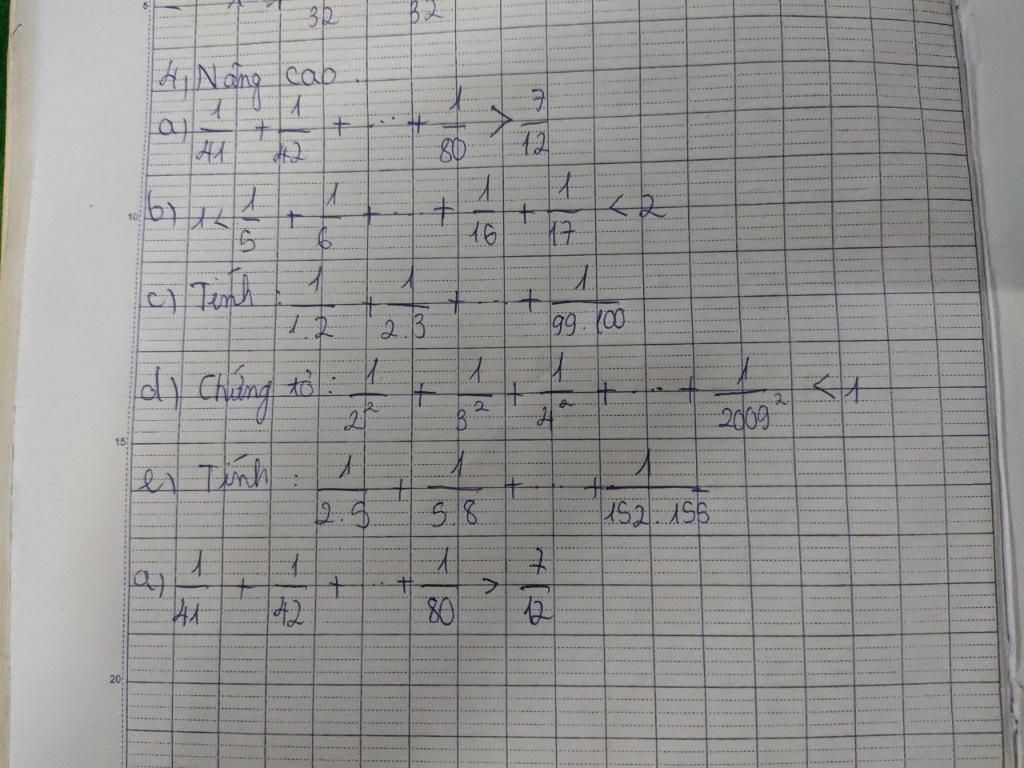 5 32 32
4, Nâng cao.
a) 1/41 + 1/42 + ... + 1/80 > 7/12
10 b) 1 < 1/5 + 1/6 + ... + 1/16 + 1/17 < 2
c) Tính : 1/1.2 + 1/2.3 + ... + 1/99.100
d) Chứng tỏ : 1/2² + 1/3² + 1/4² + ... + 1/2009² < 1
15
e) Tính : 1/2.5 + 1/5.8 + ... + 1/152.155
a) 1/41 + 1/42 + ... + 1/80 > 7/12
20